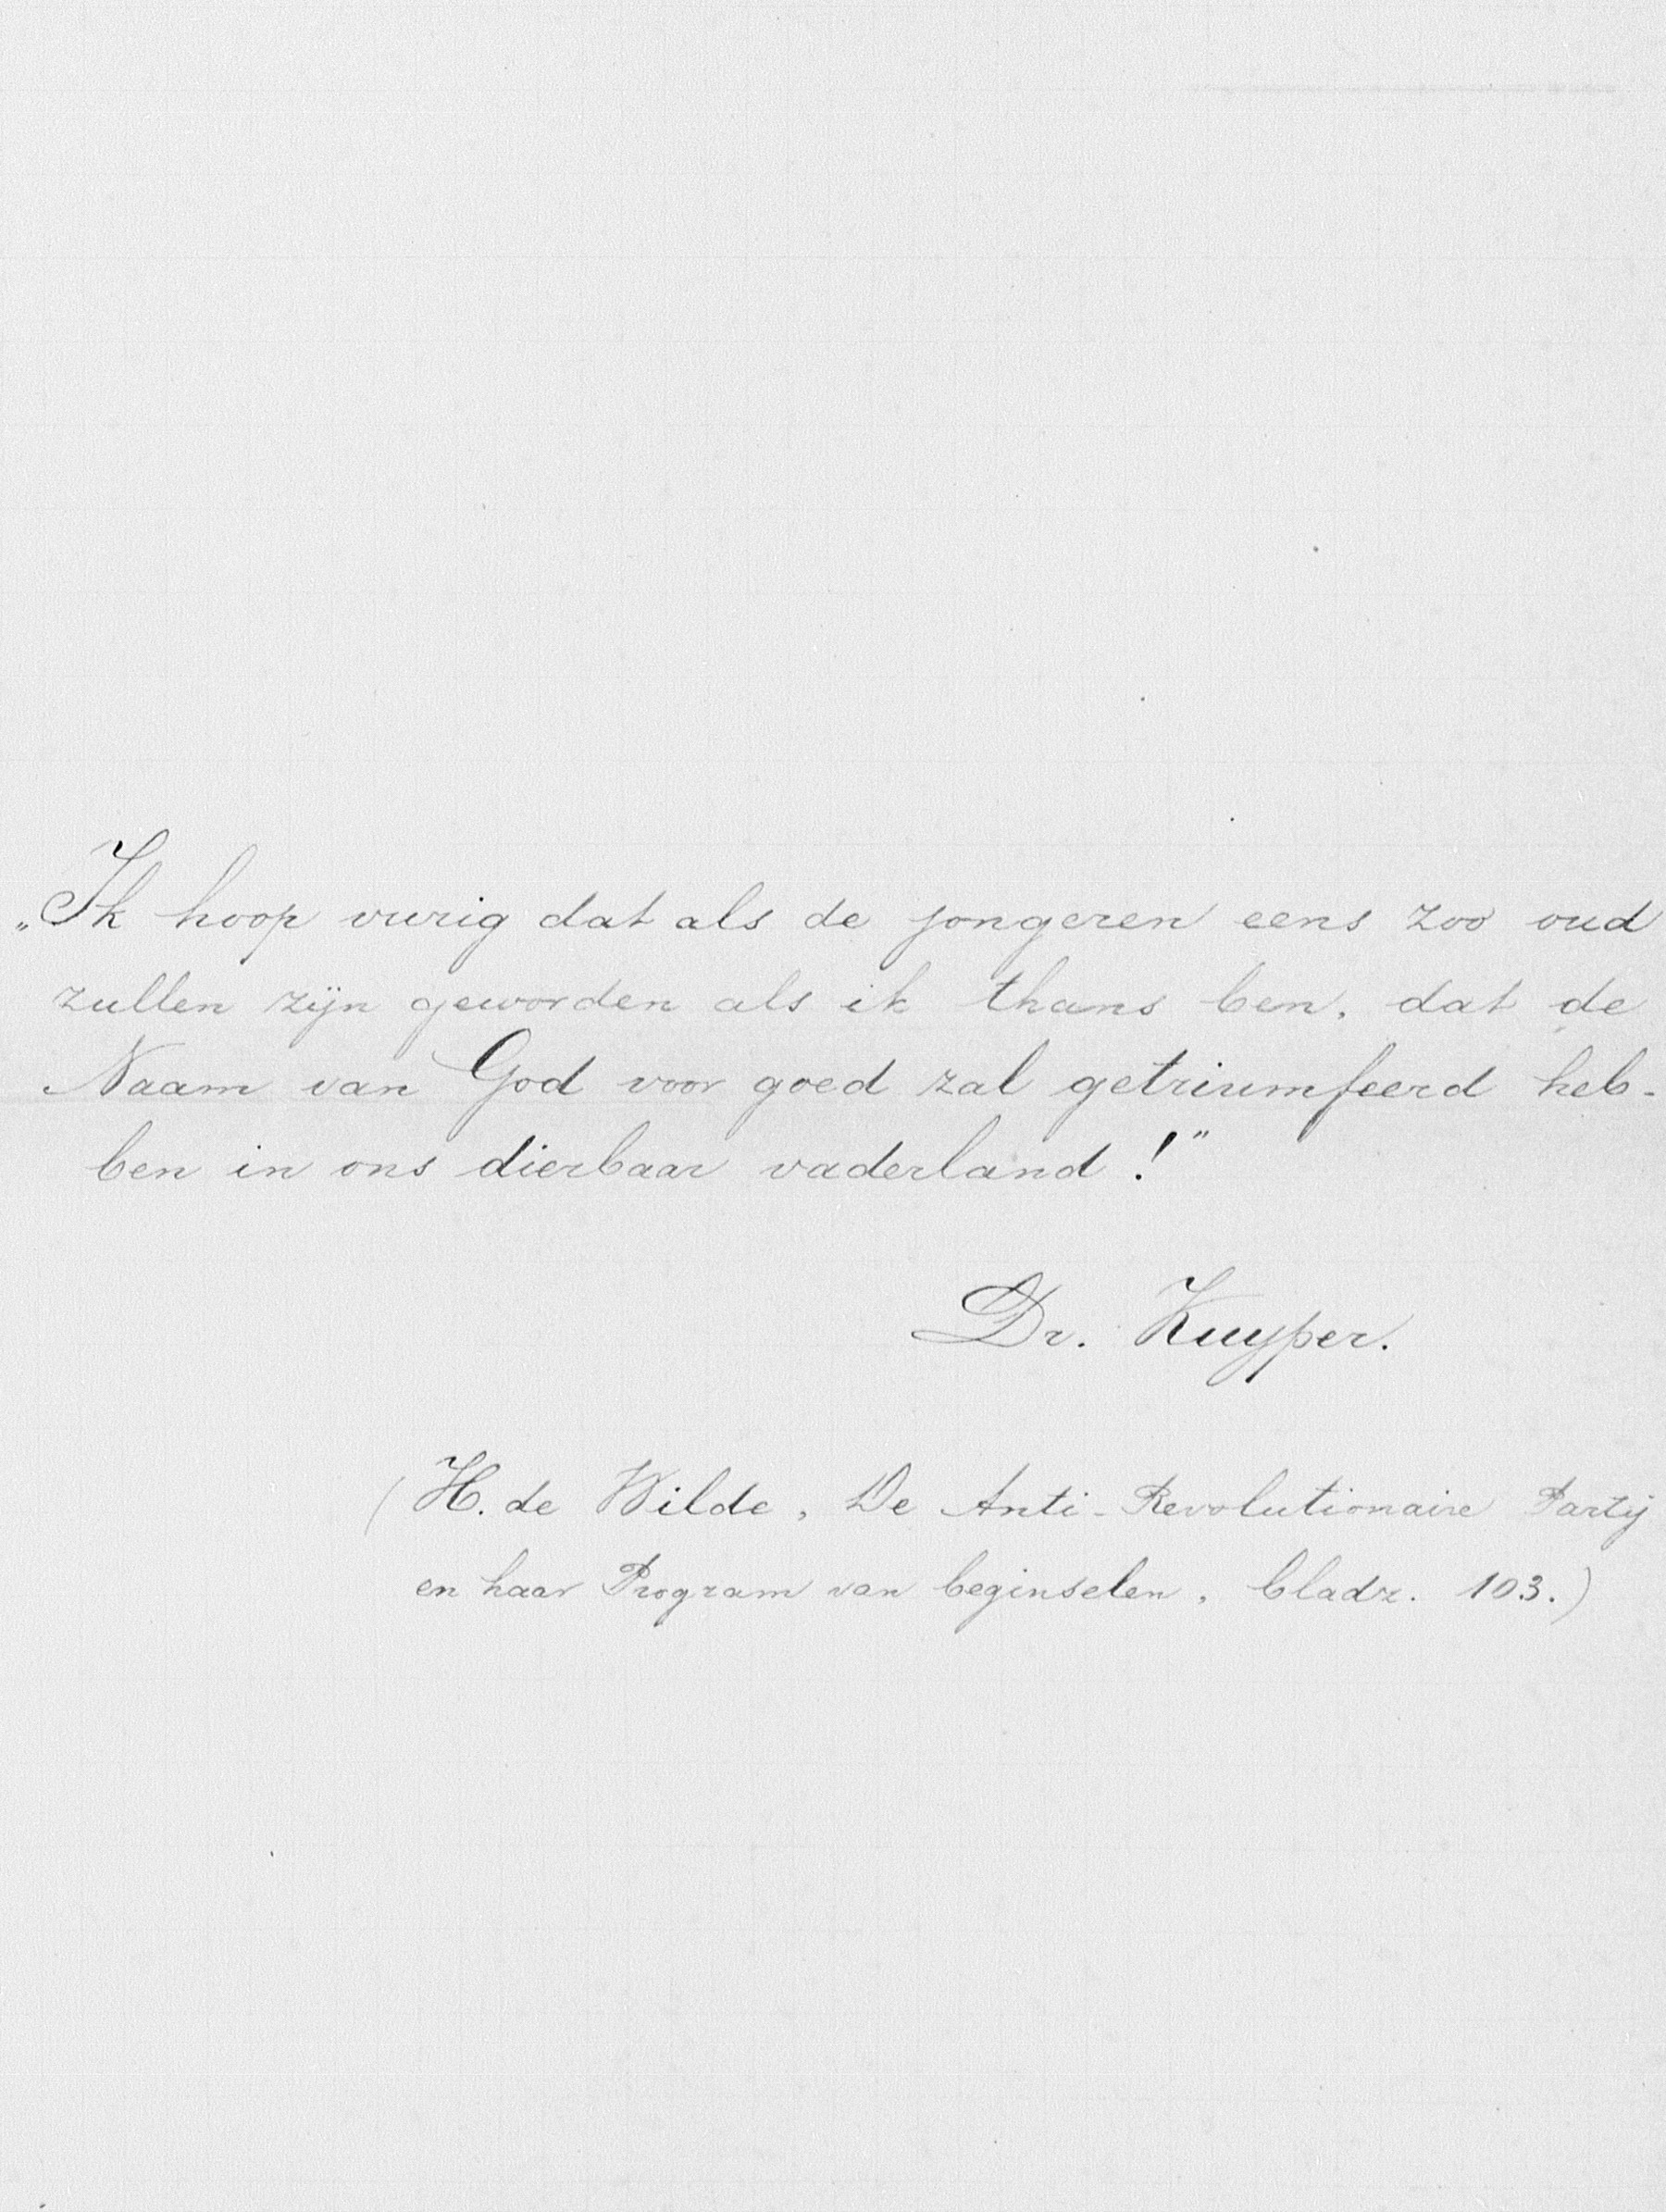 „Ik hoop vurig dat als de jongeren eens zoo oud
zullen zijn geworden als ik thans ben, dat de
Naam van God voor goed zal getriumfeerd heb-
ben in ons dierbaar vaderland!”
Dr. Kuyper.
(H. de Wilde, De Anti-Revolutionaire Partij
en haar Program van beginselen, bladz. 103.)